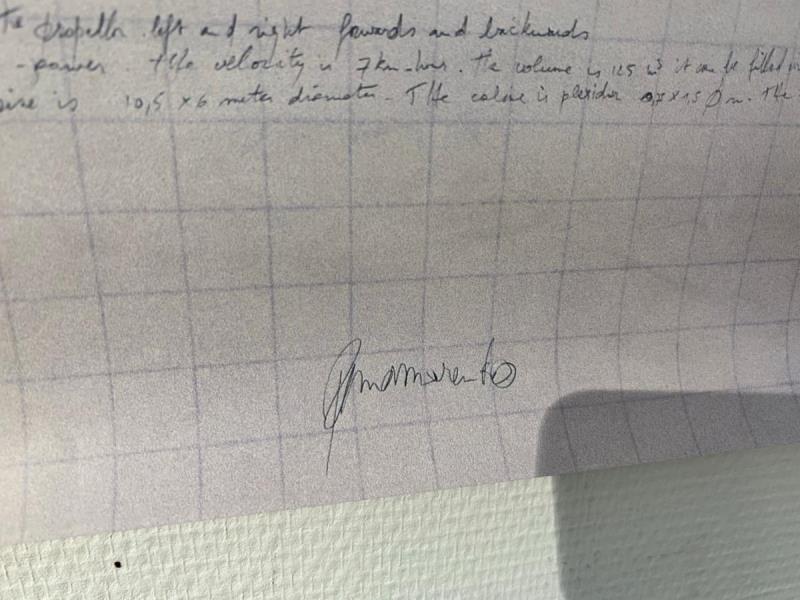 propeller left and right forwards and backwards
-power. The velocity is 7 km-hour. The volume is 125 m³ it can be filled
size is 10,5 x 6 meter diameter. The is